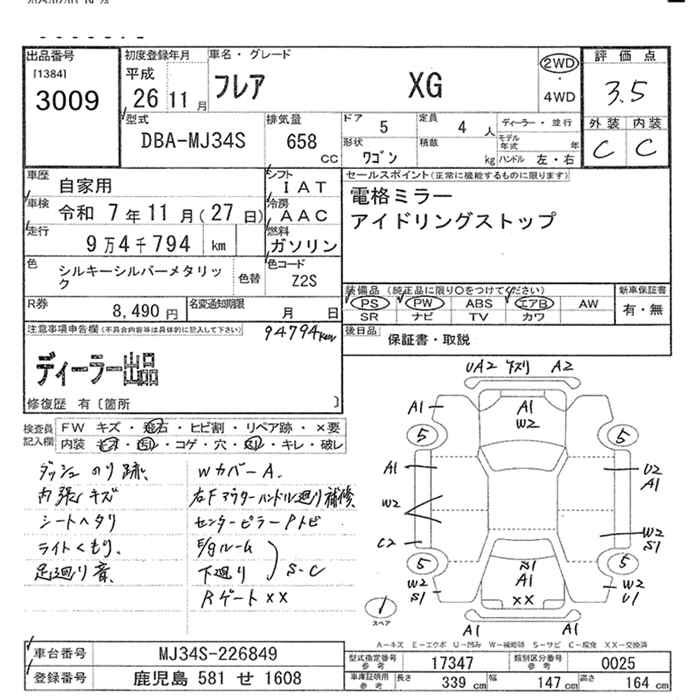 出品番号
[1384]
3009
初度登録年月
平成
26 11 月
車名・グレード
フレア XG
2WD
・
4WD
評価点
3.5
外装 内装
C C
型式
DBA-MJ34S
排気量
658 cc
ドア 5
定員 4 人
形状 ワゴン
積載 kg
ディーラー・並行
モデル年式 年
ハンドル 左・右
車歴 自家用
車検 令和 7年11月(27日)
走行 9万4千794 km
シフト IAT
冷房 AAC
燃料 ガソリン
セールスポイント(正常に機能するものに限ります)
電格ミラー
アイドリングストップ
色 シルキーシルバーメタリック
色替
色コード Z2S
R券 8,490 円
名変通知期限 月 日
装備品(純正品に限り○をつけてください)
PS PW ABS エアB AW
SR ナビ TV カワ
新車保証書
有・無
後日品 保証書・取説
注意事項申告欄(不具合内容等は具体的に記入して下さい)
94794km
ディーラー出品
修復歴 有〔箇所 〕
検査員記入欄
FW キズ・飛石・ヒビ割・リペア跡・×要
内装 キズ・汚れ・コゲ・穴・・キレ・破レ
ダッシュ のり跡
内張 キズ
シートヘタリ
ライトくもり、
足廻り音、
WカバーA.
右Fアウターハンドル廻り補修
センターピラーPトビ
E/gルーム
下廻り
S-C
Rゲート××
UA2 A2
A1 A1
W2
5 5
A1 U2
A1
W2
C2 W2
S1
5 5
S1
A1
××
W2
S1
W2
U1
A1 A1
スペア
A−キズ E−エクボ U−凹み W−補修跡 S−サビ C−腐食 XX−交換済
車台番号 MJ34S-226849
登録番号 鹿児島 581 せ 1608
型式指定番号 参考 17347
類別区分番号 参考 0025
車庫証明用 参考
長さ 339 cm 幅 147 cm 高さ 164 cm